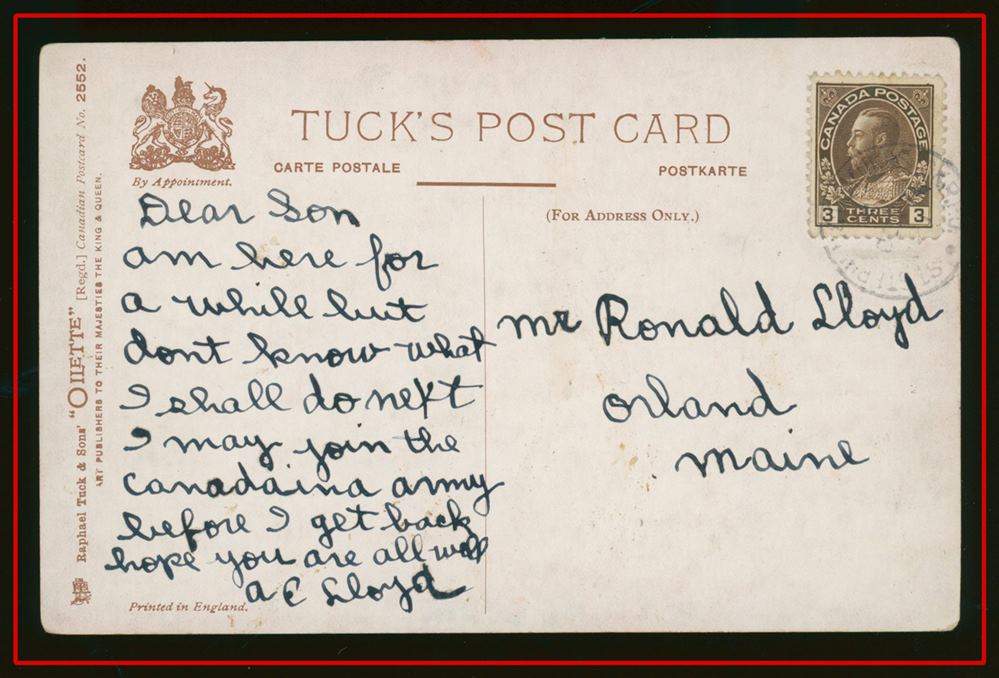 TUCK'S POST CARD
CARTE POSTALE
POSTKARTE
By Appointment.
(FOR ADDRESS ONLY.)
CANADA POSTAGE
3 THREE CENTS 3
Raphael Tuck & Sons' "OILETTE" [Regd.] Canadian Postcard No. 2552.
ART PUBLISHERS TO THEIR MAJESTIES THE KING & QUEEN.
Dear Son
am here for
a while but
dont know what
I shall do next
I may join the
Canadaina army
before I get back
hope you are all well
A E Lloyd
Mr Ronald Lloyd
Orland
Maine
Printed in England.